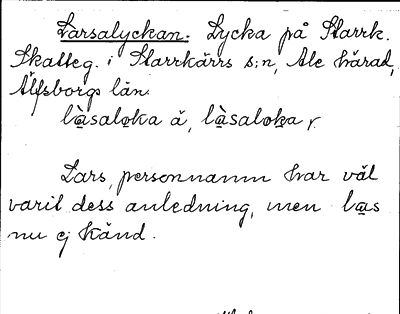 Larsalyckan. Lycka på Starrk.
Skatteg. i Starrkärrs s:n, Ale härad,
Älfsborgs län.
là̱saloka ä, là̱saloka r.
Lars, personnamn har väl
varit dess anledning, men la̱s
nu ej känd.